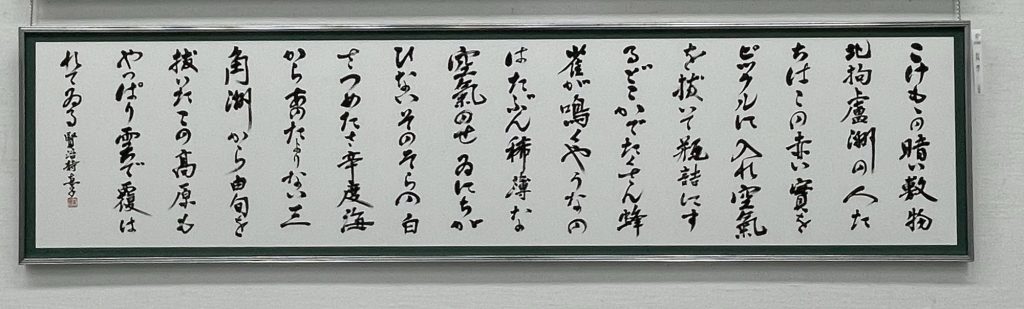 こけもゝの暗い敷物
北拘盧洲の人た
ちはこの赤い實を
ピックルに入れ空氣
を拔いて瓶詰にす
るどこかでたくさん蜂
雀が鳴くやうなの
はたぶん稀薄な
空氣のせゐにちが
ひないそのそらの白
さつめたさ辛度海
からあのたよりない三
角洲から由旬を
拔いたこの高原も
やっぱり雲で覆は
れてゐる 賢治詩